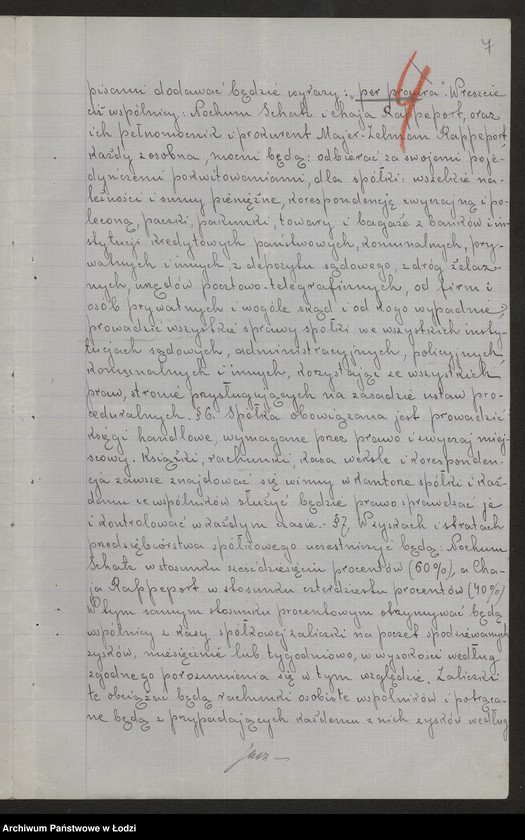 7
4
pisami dodawać będzie wyrazy: "per procura". Wreszcie
ciż wspólnicy: Nochum Schatz i Chaja Rappeport, oraz
ich pełnomocnik i prokurent Majer-Zelman Rappeport,
każdy z osobna, mocni będą: odbierać za swojemi poje-
dyńczemi pokwitowaniami, dla spółki: wszelkie na-
leżności i sumy pieniężne, korespondencję zwyczajną i po-
leconą, paczki, pakunki, towary i bagaże z banków i in-
stytucji kredytowych państwowych, komunalnych, pry-
watnych i innych, z depozytu sądowego, z dróg żelaz-
nych, urzędów pocztowo-telegraficznych, od firm i
osób prywatnych i wogóle skąd i od kogo wypadnie,
prowadzić wszystkie sprawy spółki we wszystkich insty-
tucjach sądowych, administracyjnych, policyjnych,
komunalnych i innych, korzystając ze wszystkich
praw, stronie przysługujących na zasadzie ustaw pro-
ceduralnych. § 6. Spółka obowiązana jest prowadzić
księgi handlowe, wymagane przez prawo i zwyczaj miej-
scowy. Książki, rachunki, kasa weksle i koresponden-
cja zawsze znajdować się winny w kantorze spółki i każ-
demu ze wspólników służyć będzie prawo sprawdzać je
i kontrolować w każdym czasie. - § 7. W zyskach i stratach
przedsiębiorstwa spółkowego uczestniczyć będą: Nochum
Schatz w stosunku sześćdziesięciu procentów (60%), a Cha-
ja Rappeport w stosunku czterdziestu procentów (40%)
W tym samym stosunku procentowym otrzymywać będą
wspólnicy z kasy spółkowej zaliczki na poczet spodziewanych
zysków, miesięcznie lub tygodniowo, w wysokości według
zgodnego porozumienia się w tym względzie. Zaliczki
te obciążać będą rachunki osobiste wspólników i potrąca-
ne będą z przypadających każdemu z nich zysków według
Archiwum Państwowe w Łodzi